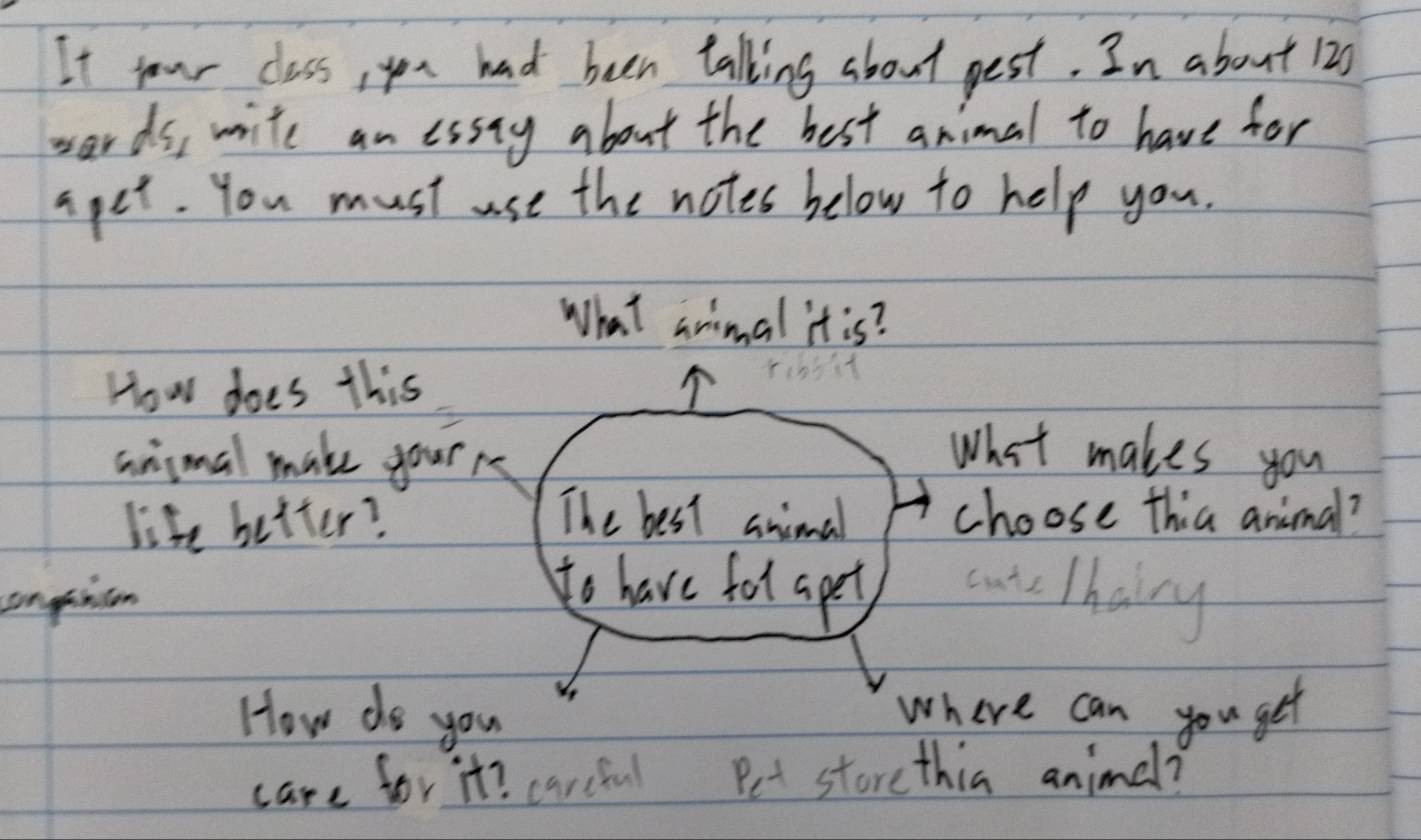 It your class, you had been talking about pest. In about 120
words, write an essay about the best animal to have for
a pet. You must use the notes below to help you.
What animal it is?
ribbit
How does this
animal make your
life better?
companion
The best animal
to have fot a pet
What makes you
choose thia animal?
cute/hairy
How do you
care for it? careful
Where can you get
Pet store thia animal?